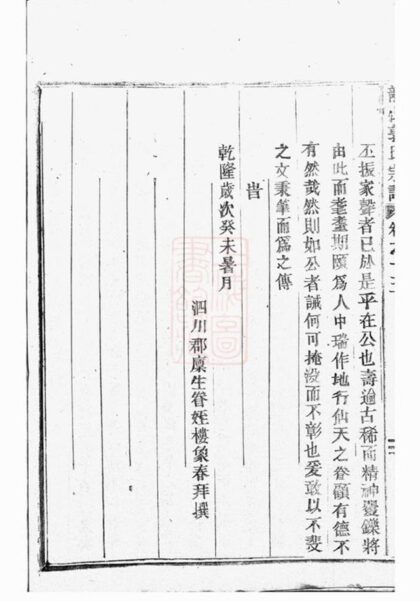 丕振家聲者已於是乎在公也壽逾古稀而精神矍鑠將
由此而耄耋期頤為人中瑞作地行仙天之眷顧有德不
有然哉然則如公者誠何可掩沒而不彰也爰敢以不斐
之文秉筆而為之傳
旹
乾隆歲次癸未暑月
泗川郡廩生眷姪樓象春拜撰
郭氏宗譜